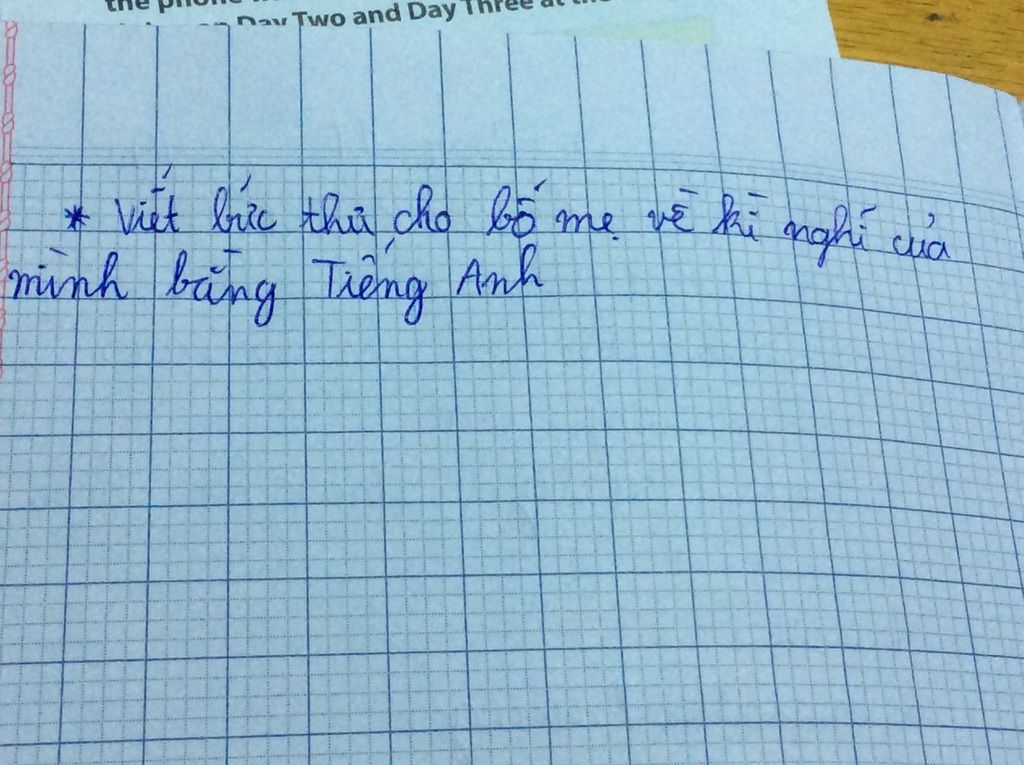 the phone
Day Two and Day Three at the
* Viết bức thư cho bố mẹ về kì nghỉ của
mình bằng Tiếng Anh